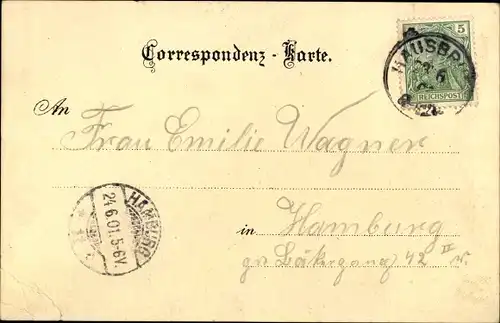 Correspondenz-Karte.
5
HAUSBR
REICHSPOST
An
Frau Emilie Wagner
HAMBURG
24.6.01.5-6V.
in Hamburg
gr Bäckergang 42 II